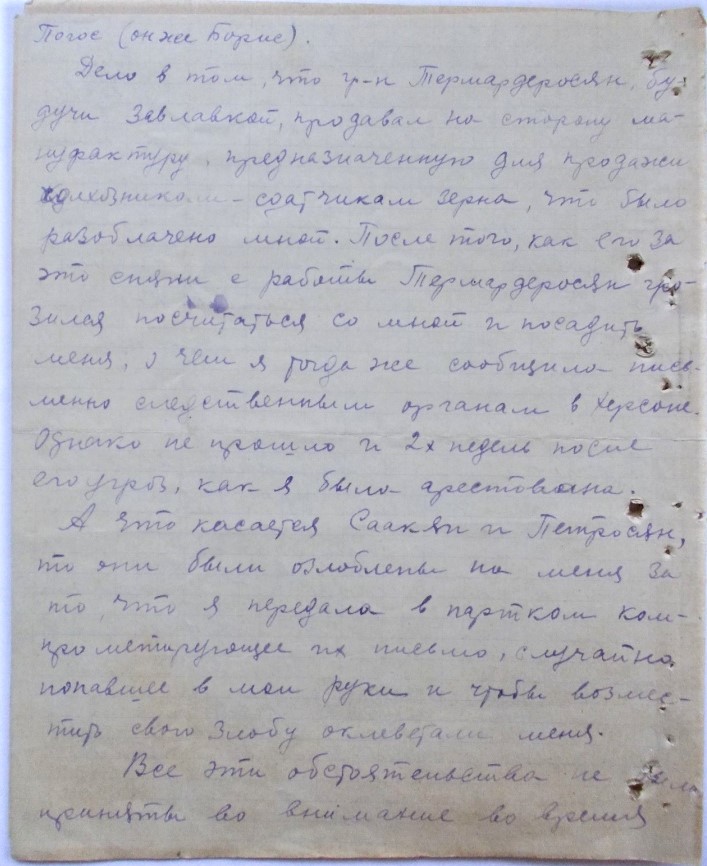 Погос (он же Борис).
Дело в том, что гр-н Термардеросян, бу-
дучи Завлавкой, продавал на сторону ма-
нуфактуру, предназначенную для продажи
колхозникам-сдатчикам зерна, что было
разоблачено мной. После того, как его за
это сняли с работы Термардеросян гро-
зился посчитаться со мной и посадить
меня, о чем я тогда же сообщила пись-
менно следственным органам в Херсоне.
Однако не прошло и 2х недель после
его угроз, как я была арестована.
А что касается Саакян и Петросян,
то они были озлоблены на меня за
то, что я передала в партком ком-
прометирующее их письмо, случайно
попавшее в мои руки и чтобы возмес-
тить свою злобу оклеветали меня.
Все эти обстоятельства не были
приняты во внимание во время